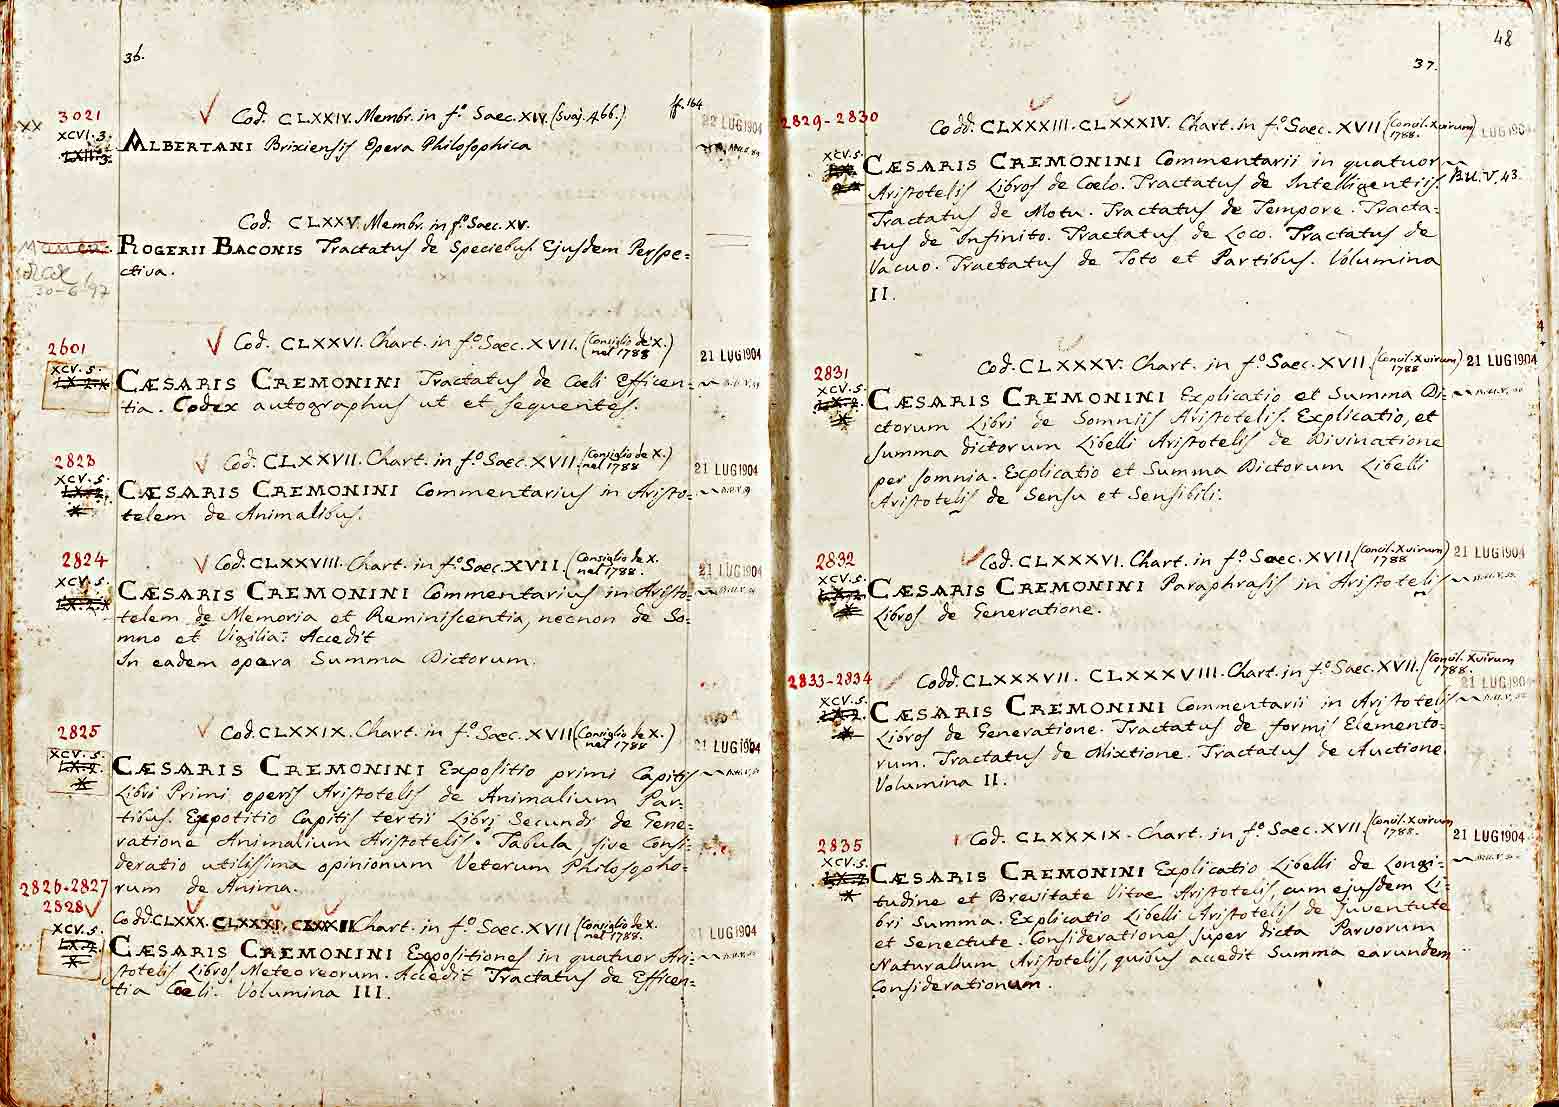 36.
3021
Cod. CLXXIV. Membr. in fo. Saec. XIV. (Svaj. 466.)
ff. 164
22 LUG 1904
XX
XCVI. 3.
LXII. 3.
ALBERTANI Brixiensis Opera Philosophica
Cod. CLXXV. Membr. in fo. Saec. XV.
Manca.
ROGERII BACONIS Tractatus de Speciebus Ejusdem Perspe=
ctiva.
30-6-97
2601
Cod. CLXXVI. Chart. in fo. Saec. XVII. (Consiglio de' X.)
nel 1788
21 LUG 1904
XCV. 5.
CÆSARIS CREMONINI Tractatus de Coeli Efficen=
tia. Codex autographus ut et sequentes.
2823
Cod. CLXXVII. Chart. in fo. Saec. XVII. (Consiglio de X.)
nel 1788
21 LUG 1904
XCV. 5.
CÆSARIS CREMONINI Commentarius in Aristo=
telem de Animalibus.
2824
Cod. CLXXVIII. Chart. in fo. Saec. XVII. (Consiglio de X.
nel 1788.
21 LUG 1904
XCV. 5.
CÆSARIS CREMONINI Commentarius in Aristo=
telem de Memoria et Reminiscentia, necnon de So=
mno et Vigilia: Accedit
In eadem opera Summa Dictorum.
2825
Cod. CLXXIX. Chart. in fo. Saec. XVII (Consiglio de X.)
nel 1788
21 LUG 1904
XCV. 5.
CÆSARIS CREMONINI Expositio primi Capitis
Libri Primi operis Aristotelis de Animalium Par=
tibus. Expotitio Capitis tertii Librj Secundi de Gene=
ratione Animalium Aristotelis. Tabula, sive Consi=
deratio utilissima opinionum Veterum Philosopho=
rum de Anima.
2826-2827
2828
Codd. CLXXX. CLXXXI, CLXXXII Chart. in fo. Saec. XVII (Consiglio de X.
nel 1788.
21 LUG 1904
XCV. 5.
CÆSARIS CREMONINI Expositiones in quatuor Ari=
stotelis Libros Meteoreorum. Accedit Tractatus de Efficen=
tia Coeli. Volumina III.
48
37.
2829-2830
Codd. CLXXXIII. CLXXXIV. Chart. in fo. Saec. XVII (Concil. Xvirum)
1788.
LUG 1904
XCV. 5.
CÆSARIS CREMONINI Commentarii in quatuor
B.U. V. 43.
Aristotelis Libros de Coelo. Tractatus de Intelligentiis.
Tractatus de Motu. Tractatus de Tempore. Tracta=
tus de Infinito. Tractatus de Loco. Tractatus de
Vacuo. Tractatus de Toto et Partibus. Volumina
II.
2831
Cod. CLXXXV. Chart. in fo. Saec. XVII (Concil. Xvirum)
1788
21 LUG 1904
XCV. 5.
CÆSARIS CREMONINI Explicatio et Summa Di=
ctorum Libri de Somniis Aristotelis. Explicatio, et
summa dictorum Libelli Aristotelis de Divinatione
per somnia. Explicatio et Summa Dictorum Libelli
Aristotelis de Sensu et Sensibili.
2832
Cod. CLXXXVI. Chart. in fo. Saec. XVII (Concil. Xvirum)
1788
21 LUG 1904
XCV. 5.
CÆSARIS CREMONINI Paraphrasis in Aristotelis
Libros de Generatione.
2833-2834
Codd. CLXXXVII. CLXXXVIII. Chart. in fo. Saec. XVII. (Concil. Xvirum
1788.
21 LUG 1904
XCV. 5.
CÆSARIS CREMONINI Commentarii in Aristotelis
Libros de Generatione. Tractatus de formis Elemento=
rum. Tractatus de Mixtione. Tractatus de Auctione.
Volumina II.
2835
Cod. CLXXXIX. Chart. in fo. Saec. XVII (Concil. Xvirum
1788.
21 LUG 1904
XCV. 5.
CÆSARIS CREMONINI Explicatio Libelli de Longi=
tudine et Brevitate Vitae Aristotelis, cum ejusdem Li=
bri Summa. Explicatio Libelli Aristotelis de Juventute
et Senectute. Considerationes super dicta Parvorum
Naturalium Aristotelis, quibus accedit Summa earundem
Considerationum.